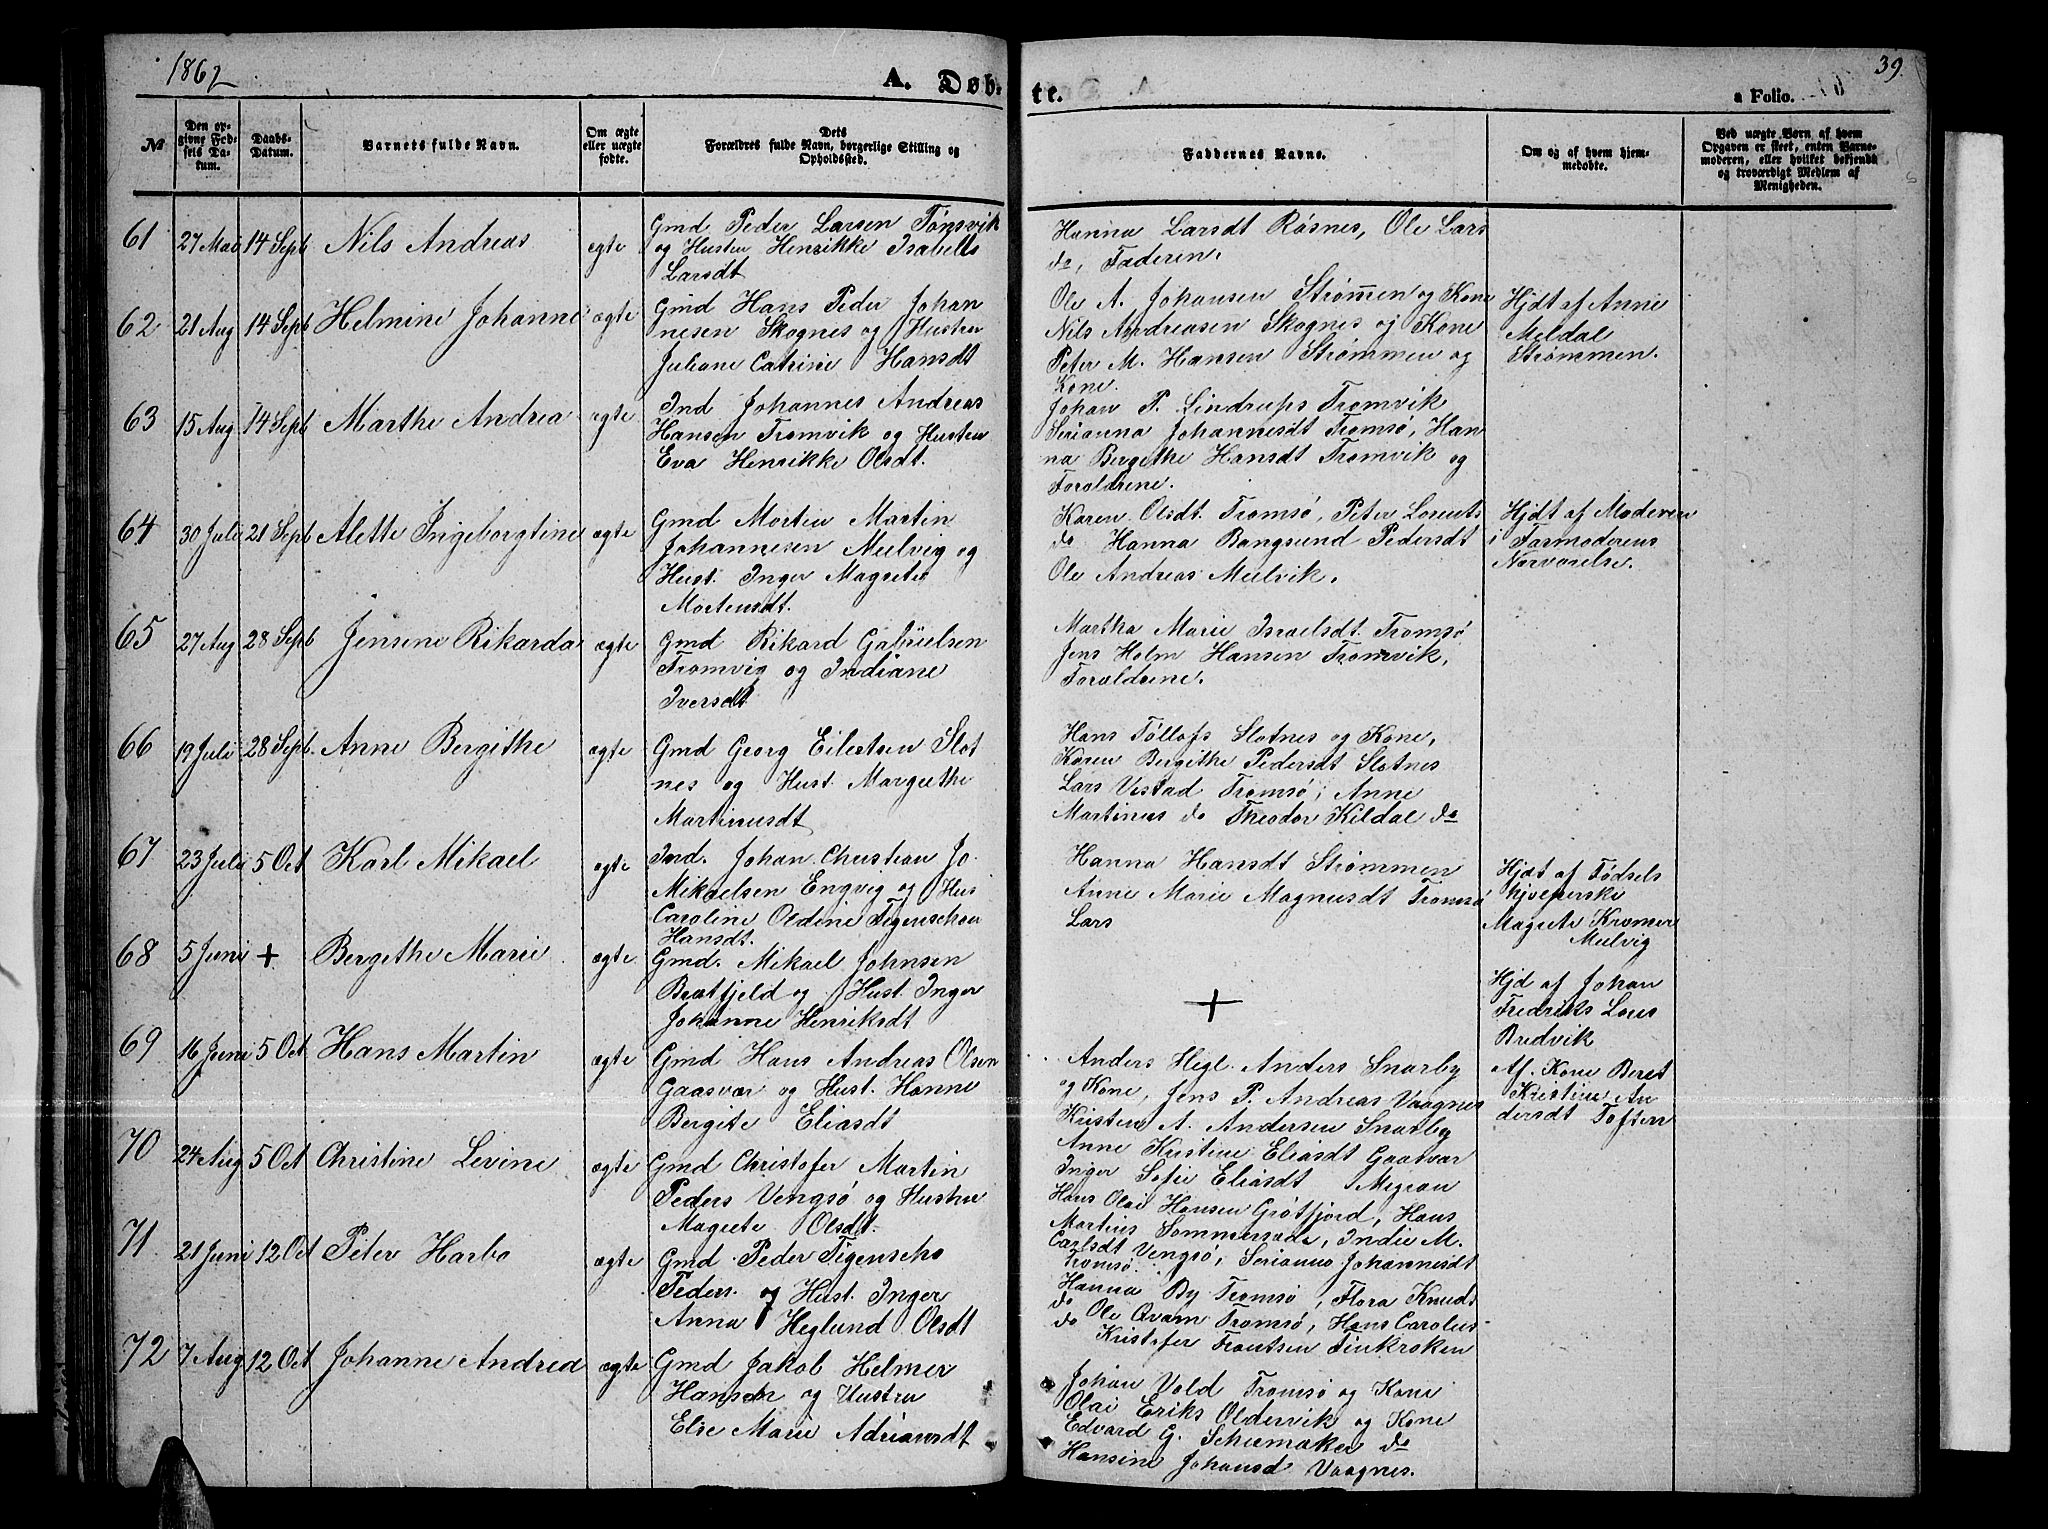 1862
A. Døb-
te.
39.
a Folio.
№
Den op-
givne Fød-
sels Da-
tum.
Daabs-
Datum.
Barnets fulde Navn.
Om ægte
eller uægte
fødte.
Dets
Forældres fulde Navn, borgerlige Stilling og
Opholdssted.
Faddernes Navne.
Om og af hvem hjem-
medøbte.
Ved uægte Børn af hvem
Opgaven er skeet, enten Barne-
moderen, eller hvilket bekjendt
og troværdigt Medlem af
Menigheden.
61 27 Mai 14 Sept Nils Andreas ægte
Gmd Peder Larsen Tønsvik
og Hustru Henrikke Isabella
Larsdt
Hanna Larsdt Røsnes, Ole Lars
do, Faderen.
62 21 Aug 14 Sept Helmine Johanne ægte
Gmd Hans Peder Johan
nesen Skognes og Hustru
Juliane Catrine Hansdt
Ole A. Johansen Strømmen og Kone
Nils Andreasen Skognes og Kone
Peter M. Hansen Strømmen og
Kone.
Hjdt af Anne
Meldal
Strømmen.
63 15 Aug 14 Sept Marthe Andrea ægte
Ind Johannes Andreas
Hansen Tromvik og Hustru
Eva Henrikke Olsdt.
Johan P. Lindrups Tromvik
Serianna Johannesdt Tromsø, Han
na Bergithe Hansdt Tromvik og
Forældrene.
64 30 Juli 21 Sept Alette Ingeborgtine ægte
Gmd Morten Martin
Johannesen Mulvig og
Hust. Inger Magrete
Mortensdt.
Karen Olsdt. Tromsø, Peter Lorents
do Hanna Bangsund Pedersdt
Ole Andreas Mulvik.
Hjdt af Moderen
i Farmoderens
Nærværelse.
65 27 Aug 28 Sept Jensine Rikarda ægte
Gmd Rikard Gabrielsen
Tromvig og Indiane
Iversdt
Martha Marie Israelsdt. Tromsø
Jens Holm Hansen Tromvik,
Forældrene.
66 19 Juli 28 Sept. Anne Bergithe ægte
Gmd Georg Eilertsen Slot
nes og Hust. Margrethe
Martinusdt
Hans Tøllofs Slotnes og Kone,
Karen Bergithe Pedersdt Slotnes
Lars Vestad Tromsø, Anne
Martinus do Theodor Kildal do
67 23 Juli 5 Oct Karl Mikael ægte
Ind. Johan Christian Jo
Mikaelsen Engvig og Hus
Caroline Oldine Figenschau
Hansdt.
Hanna Hansdt Strømmen
Anne Marie Magnusdt Tromsø
Lars
Hjdt af Fødsels
hjelperske
Magrete Kræmer
Mulvig
68 5 Juni + Bergethe Marie ægte
Gmd. Mikael Johnsen
Brætfjeld og Hust. Inger
Johanne Henriksdt
+
Hjd af Johan
Fredriks Lors
Bredvik
69 16 Juni 5 Oct Hans Martin ægte
Gmd Hans Andreas Olsen
Gaasvær og Hust. Hanne
Bergite Eliasdt
Anders Hegl. Anders Snarby
og Kone, Jens P. Andreas Vaagnes
Kristen A. Andersen Snarby
Anne Kristine Eliasdt Gaasvær
Inger Sofie Eliasdt
Af. Kone Beret
Kristine An
dersdt Toften
70 24 Aug 5 Oct Christine Levine ægte
Gmd Christofer Martin
Peders Vengsø og Hustru
Magrete Olsdt.
Hans Olai Hansen Grøtfjord, Hans
Martius Sommersæde, Indie M.
Carlsdt Vengsø, Serianna Johannesdt
Tromsø.
71 21 Juni 12 Oct Peter Harbo ægte
Gmd Peder Figenscho
Peders. og Hust. Inger
Anna Heglund Olsdt
Hanna By Tromsø, Flora Knuds
do Ole Qvam Tromsø, Hans Carolus
do Kristofer Frantsen Finkroken
72 7 Aug 12 Oct Johanne Andrea ægte
Gmd Jakob Helmer
Hansen og Hustru
Else Marie Adriansdt
Johan Vold Tromsø og Kone
Olai Eriks Oldervik og Kone
Edvard G. Schumaker do
Hansine Johansd Vaagnes.